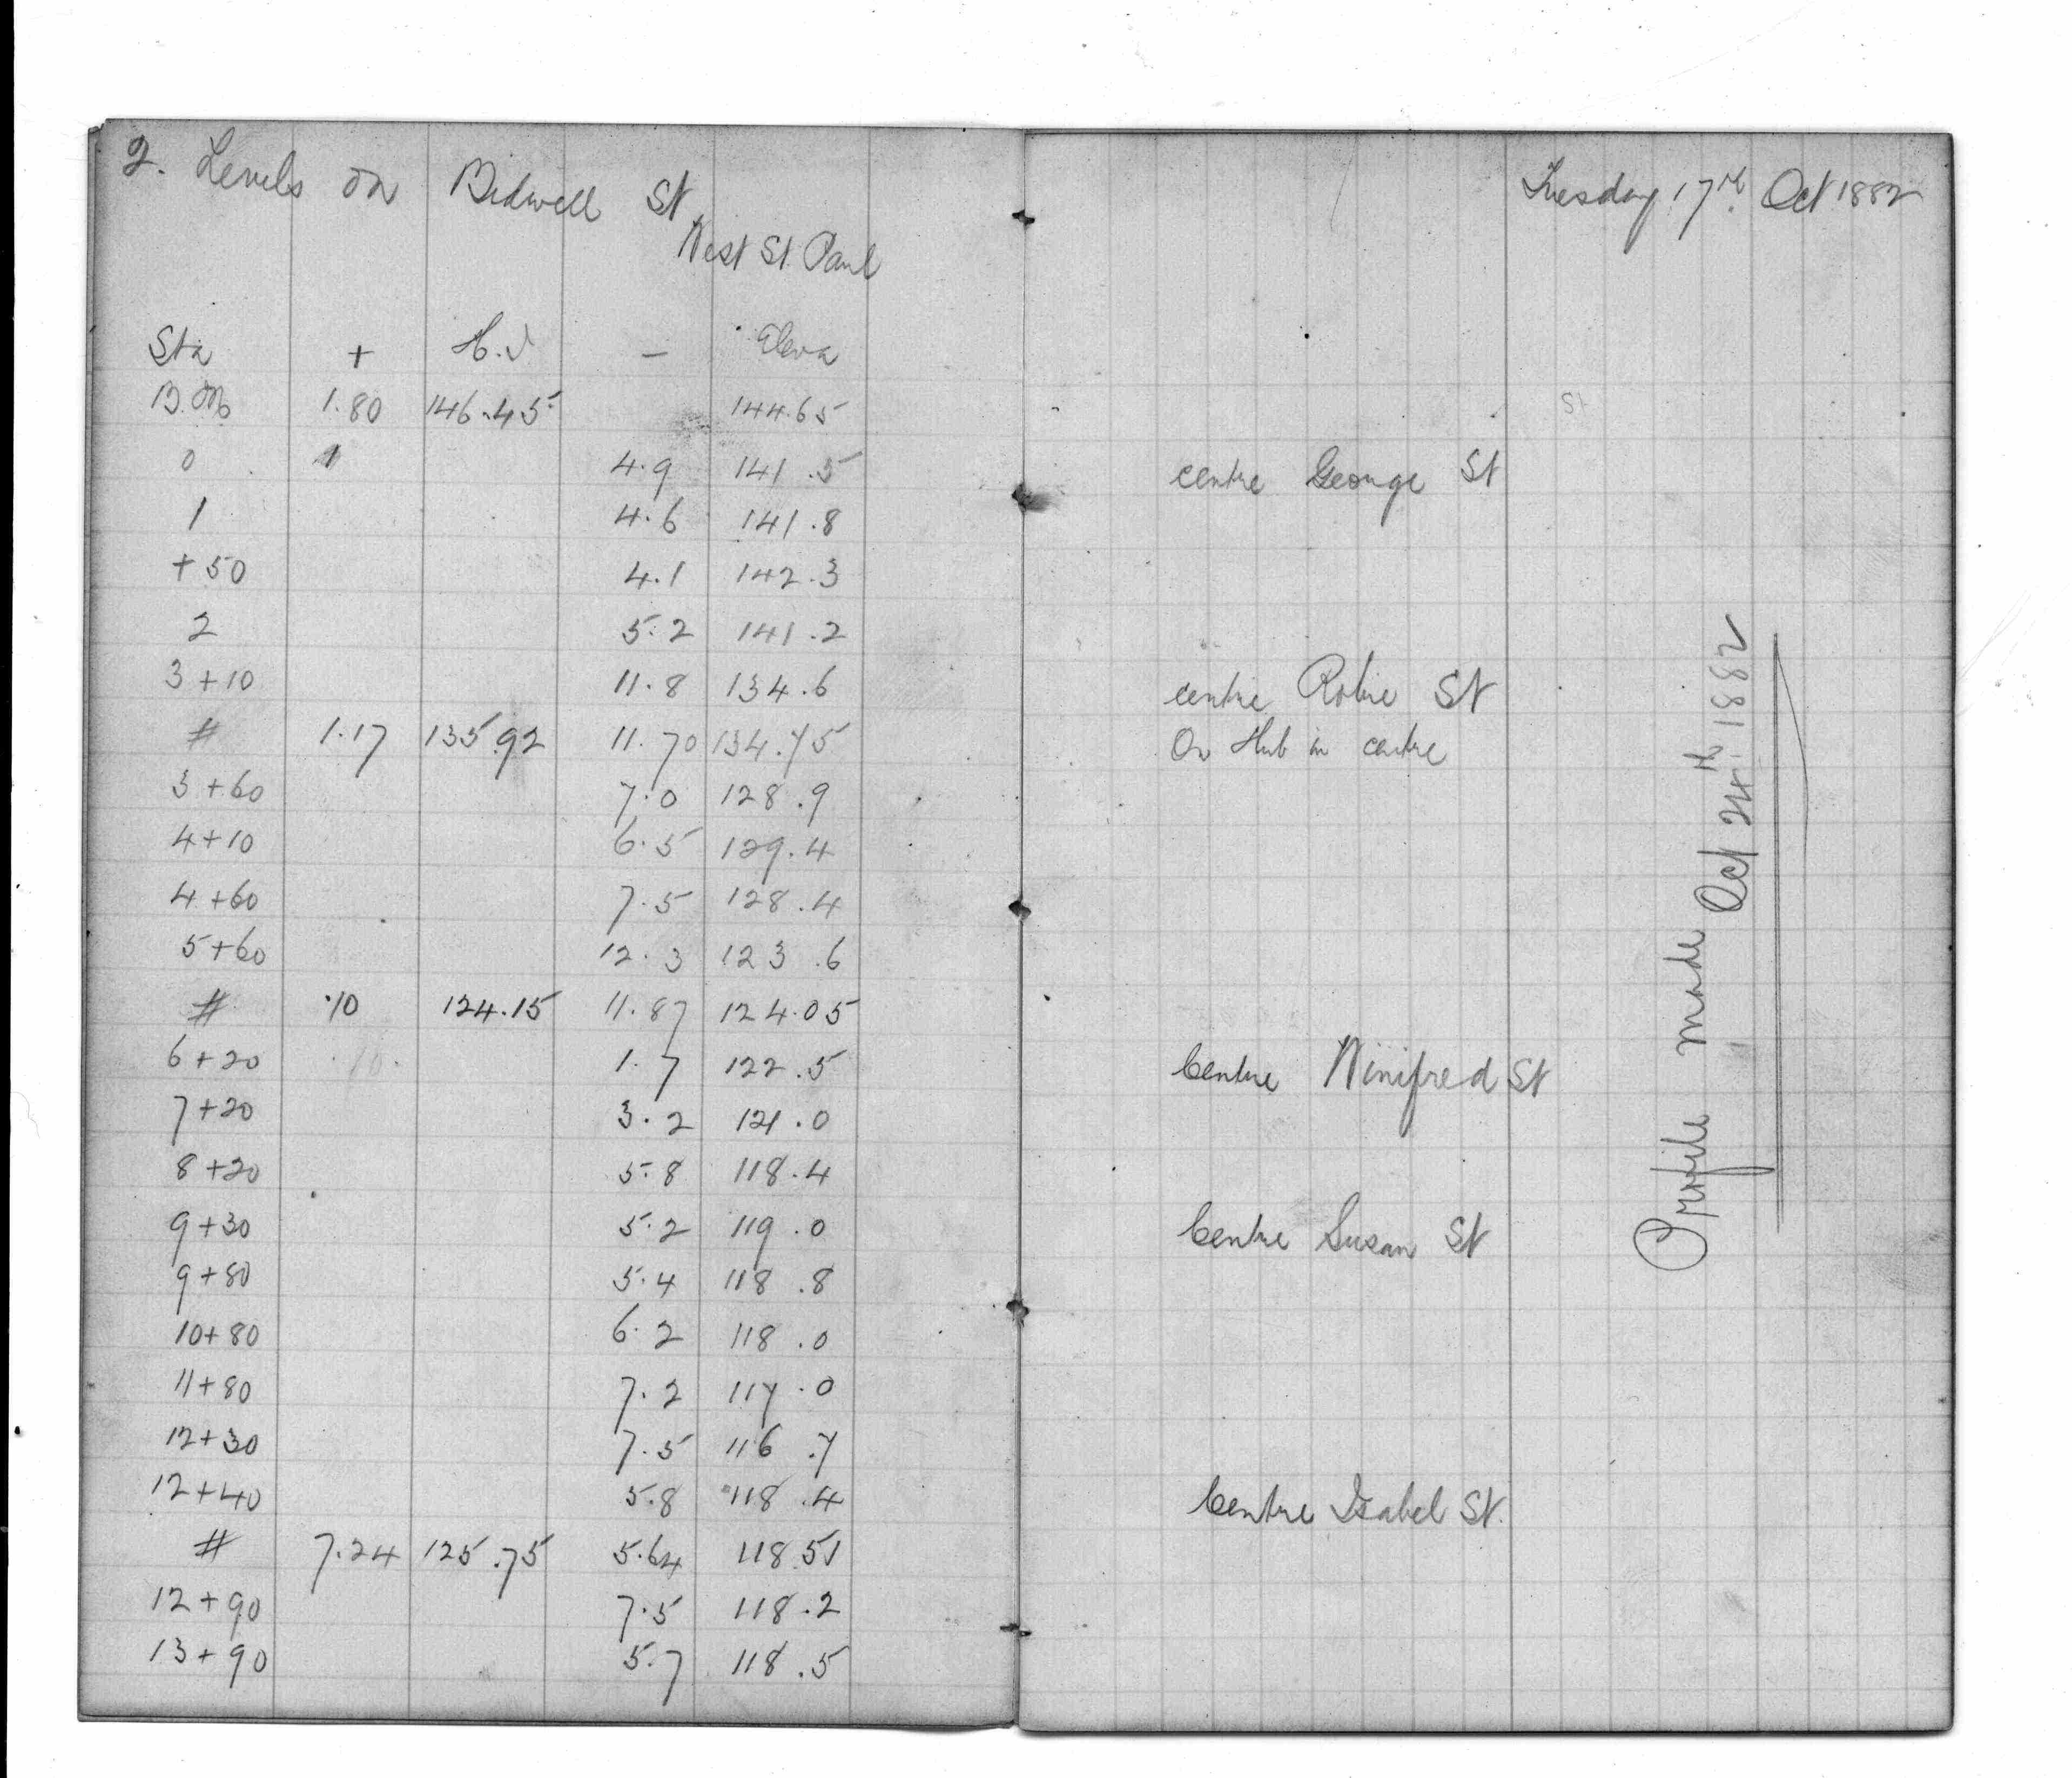 2. Levels on Bidwell St
West St. Paul
Tuesday 17th Oct 1882
Sta + H.I - Eleva
B.M 1.80 146.45 144.65
St
0 4.9 141.5 centre George St
1 4.6 141.8
+50 4.1 142.3
2 5.2 141.2
3+10 11.8 134.6 centre Robie St
# 1.17 135.92 11.70 134.75 On Hub in centre
3+60 7.0 128.9
4+10 6.5 129.4
4+60 7.5 128.4
5+60 12.3 123.6
# .10 124.15 11.87 124.05
6+20 .10. 1.7 122.5 Centre Winifred St
7+20 3.2 121.0
8+20 5.8 118.4
9+30 5.2 119.0 Centre Susan St
9+80 5.4 118.8
10+80 6.2 118.0
11+80 7.2 117.0
12+30 7.5 116.7
12+40 5.8 118.4 Centre Isabel St.
# 7.24 125.75 5.64 118.51
12+90 7.5 118.2
13+90 5.7 118.5
Profile made Oct 24th 1882